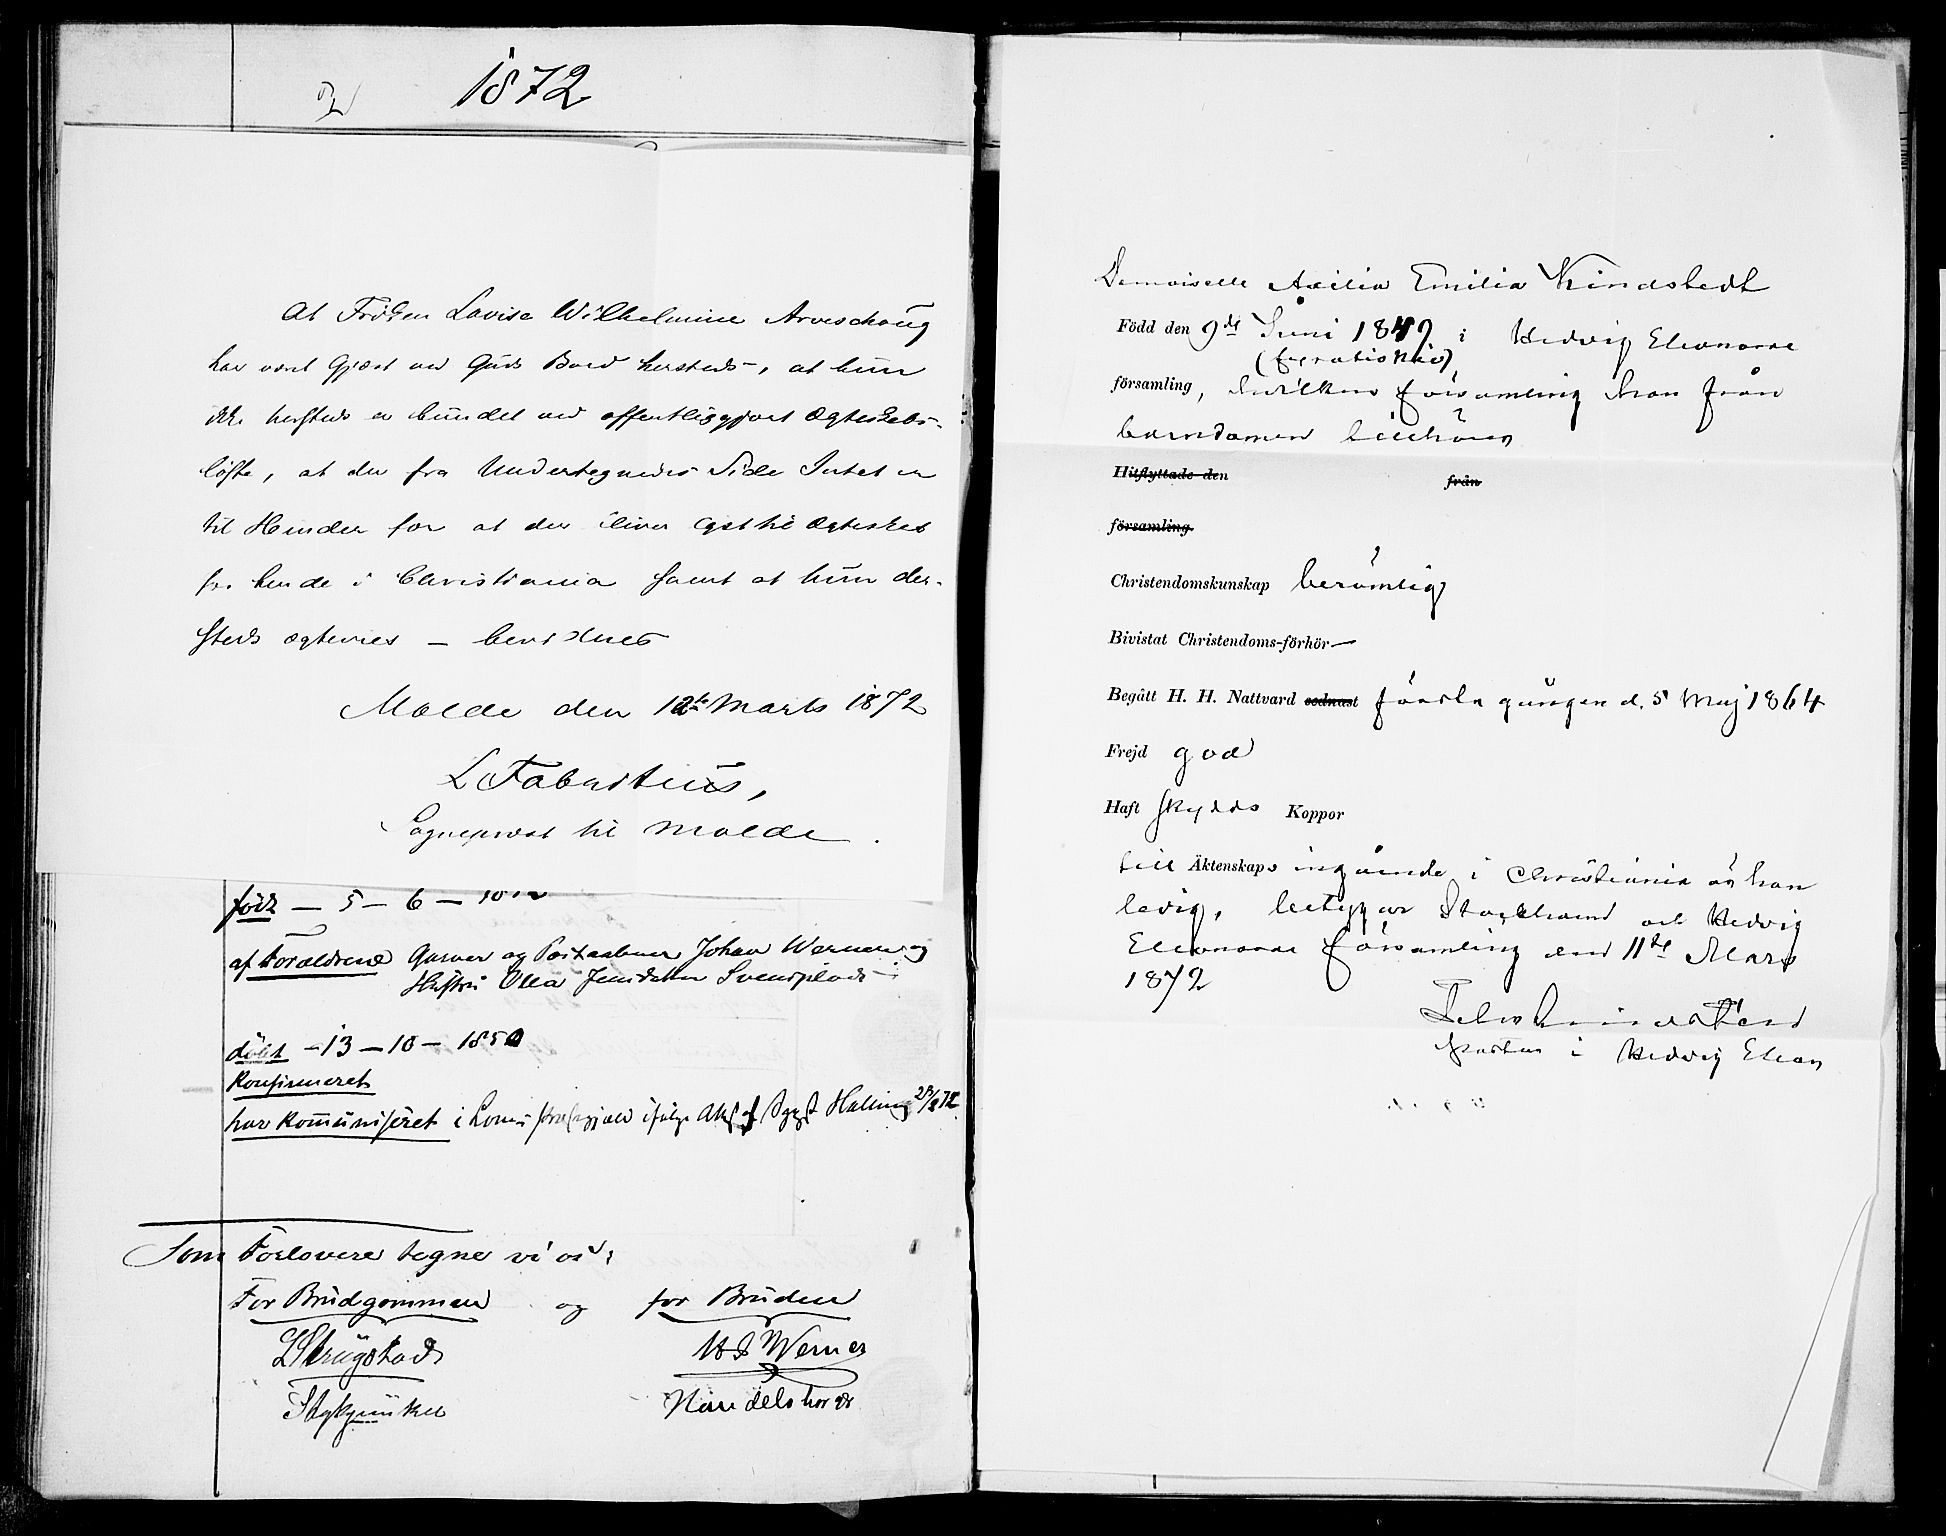 1872
At Frøken Lovise Wilhelmine Arveschoug
har været Gjæst ved Guds Bord hersteds, at hun
ikke hersteds er bundet ved offentliggjort Ægteskabs-
løfte, at der fra Undertegnedes Side Intet er
til Hinder for at der bliver lyst til Ægteskab
for hende i Christiania samt at hun der-
steds ægtevies — bevidnes
Molde den 12te Marts 1872
L Fabritius,
Sogneprest til Molde.
født — 5 — 6 —
af Forældrene Gaver og Postaabner Johan Werner og
Hustru Olea Jensdatter
døbt — 13 — 10 — 1850
Konfirmeret
har kommuniseret i Loms Præstegjæld ifølge Att. af Sgpst Halling
Som Forlovere tegne vi os:
For Brudgommen og for Bruden
Skrugstad Werner
Handelsborger
Demoiselle Axilia Emilia Kindstedt
Född den 9de Juni 1849 i Hedvig Eleonoræ
församling, hvilken församling hon från
barndomen tillhört
Hitflyttade den från
församling.
Christendomskunskap berömlig
Bivistat Christendoms-förhör —
Begått H. H. Nattvard sednast första gången d. 5 Maj 1864
Frejd god
Haft skydds Koppor
till Äktenskaps ingående i Christiania är hon
ledig, betygar Stockholm och Hedvig
Eleonoræ församling den 11te Mars
1872
Pastor i Hedvig Eleon